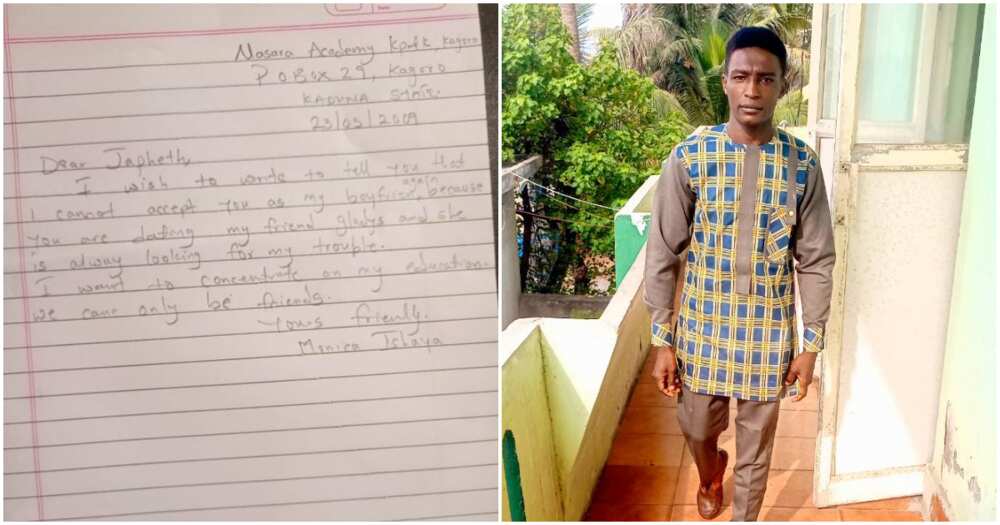 Nasara Academy Kpak, Kagoro
P O Box 29, Kagoro
KADUNA STATE.
23/05/2009
Dear Japheth,
I wish to write to tell you that
I cannot accept you as my boyfriend again, because
you are dating my friend gladys and she
is alway looking for my trouble.
I want to concentrate on my education.
we cane only be friends.
Yours frienly.
Monica Ishaya